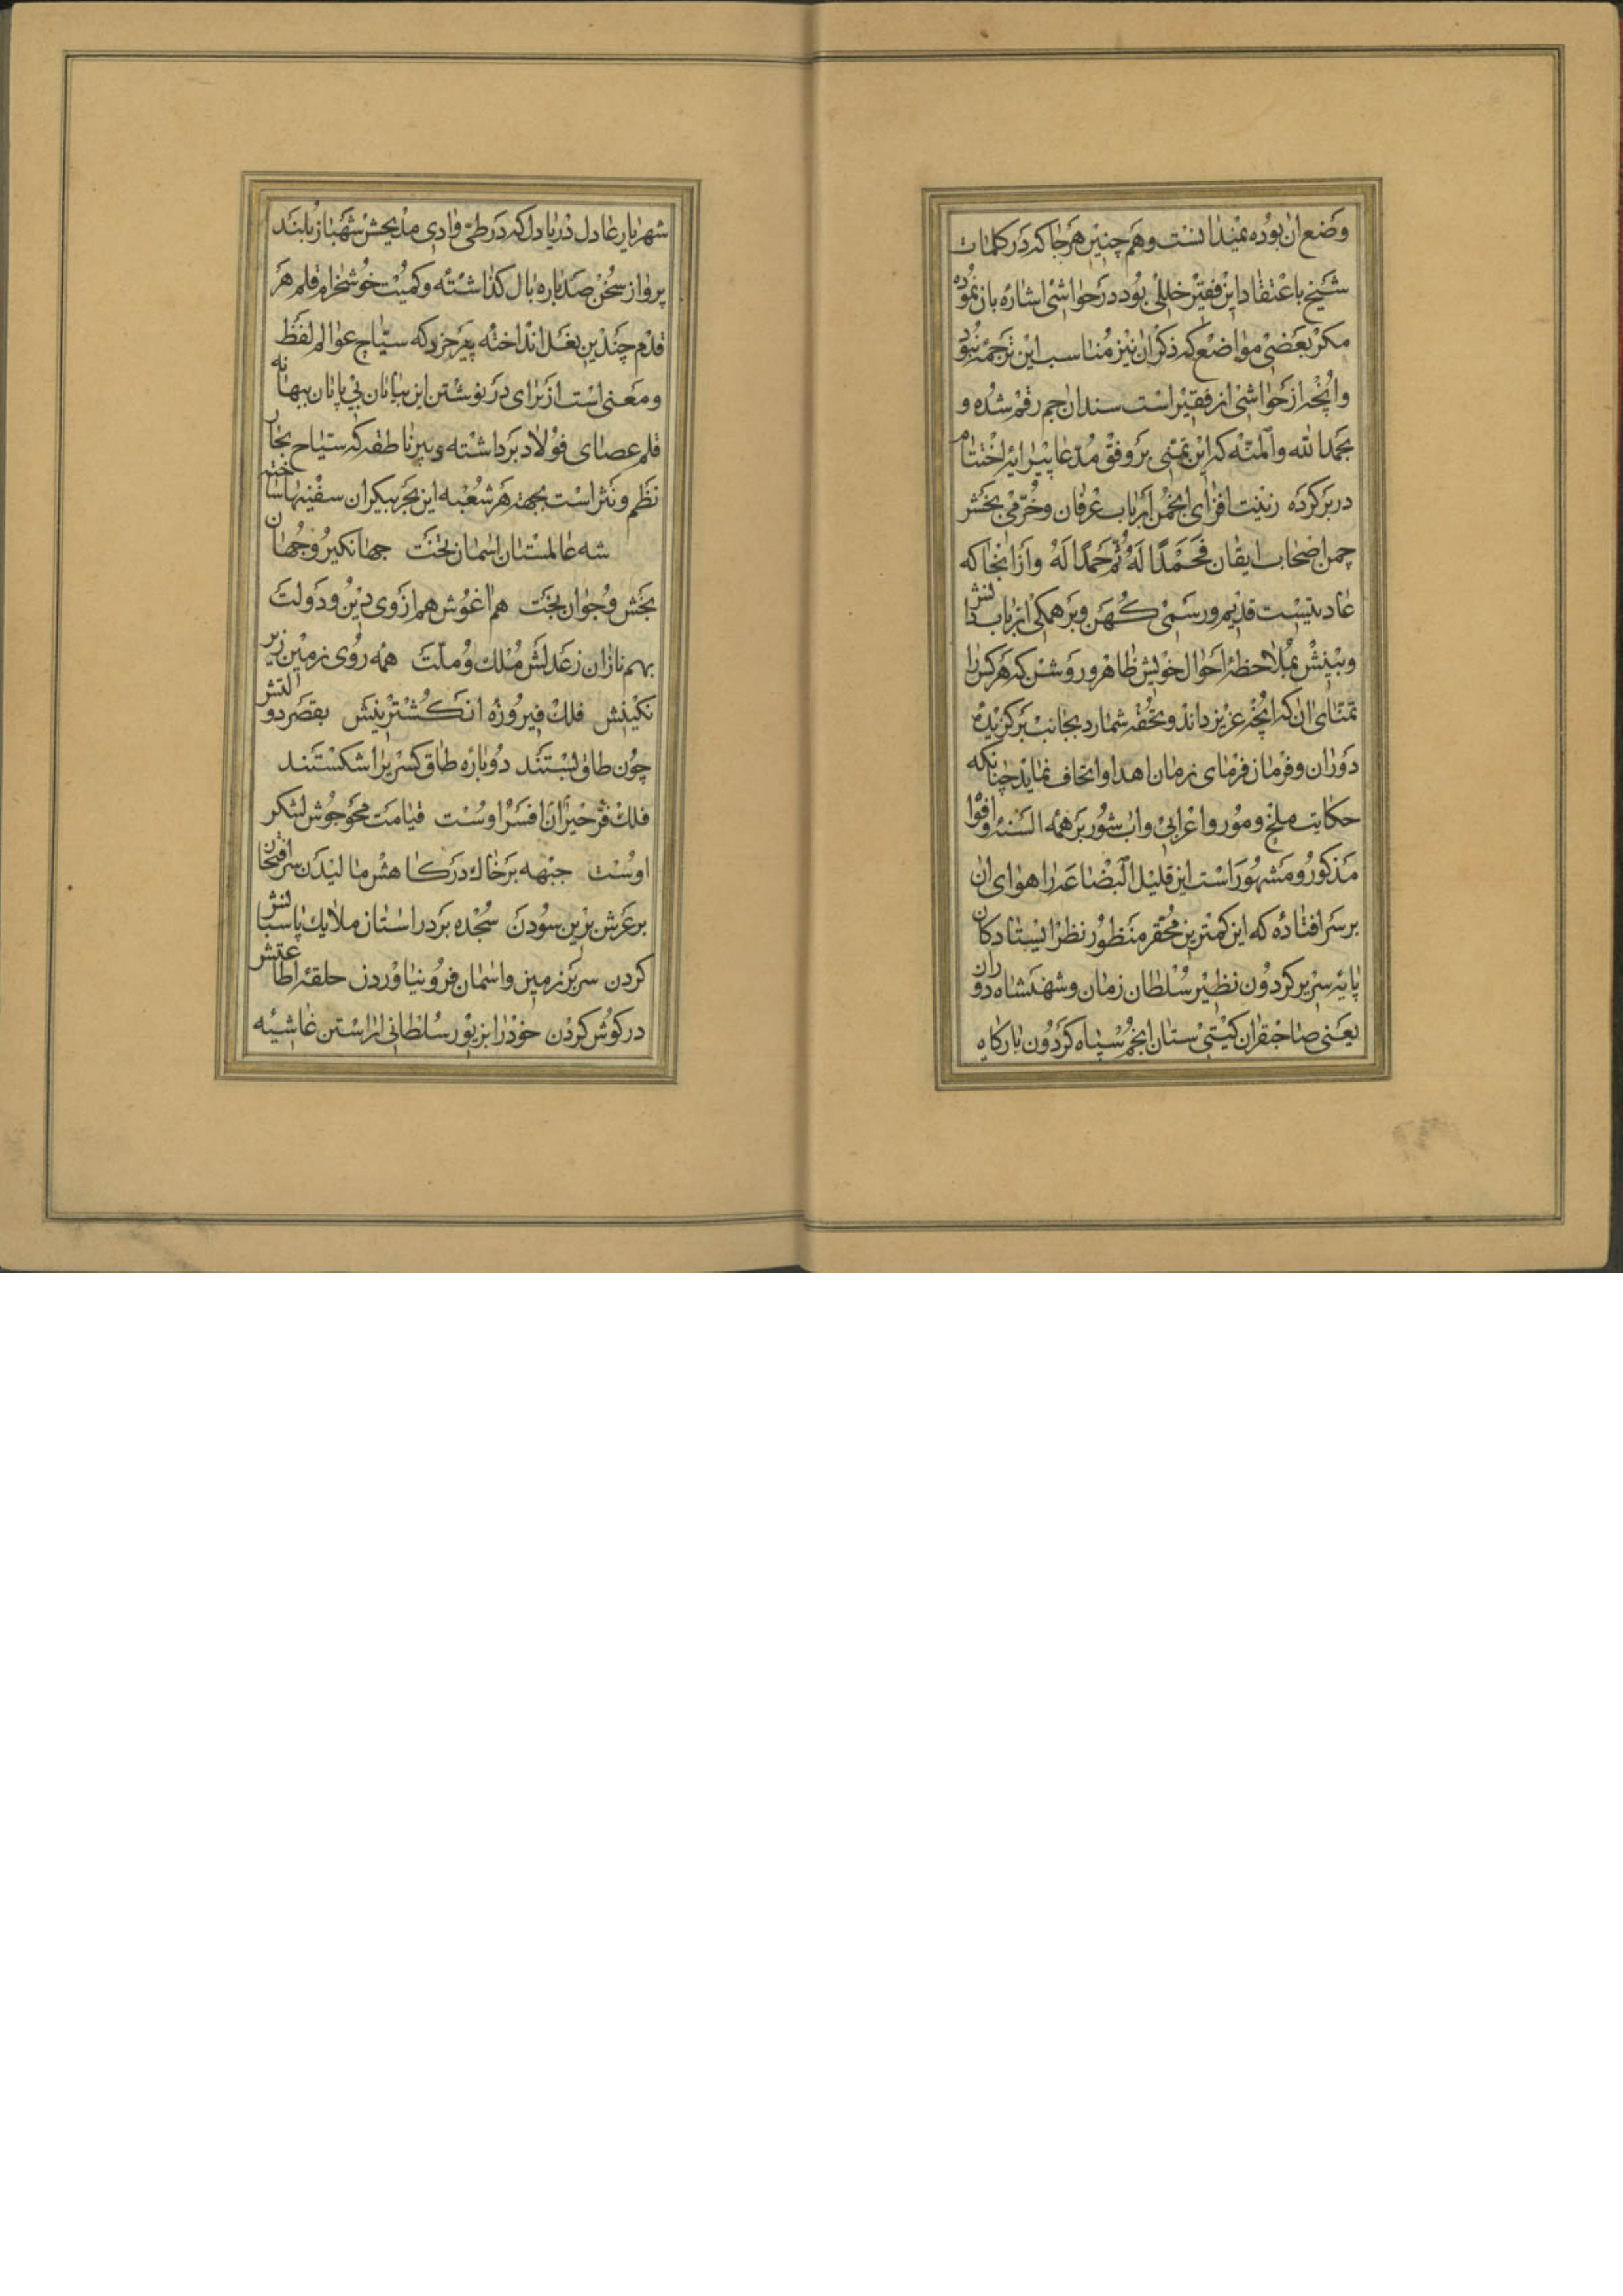 وضع ان بوده میدانست و هم چنین هر جا که در کلمات
شیخ باعتقاد این فقیر خللی بود در حواشی اشاره بان نموده
مکر بعضی مواضع که ذکر ان نیز مناسب این ترجمه نبود
وانچه از حواشی از فقیر است سندان جم رقم شده و
بحمد الله والمنه که این تمنی بر وفق مدعا پیرایه اختتام
در بر کرده زینت افزای انجمن ارباب عرفان و خرمی بخش
چمن اصحاب ایقان فحمدا له ثم حمدا له وازانجا که
عادتیست قدیم و رسمی کهن و بر همکی ارباب دانش
و بینش بملاحظه احوال خویش ظاهر و روشن که هر کس را
تمنای ان که انچه عزیز داند و تحفه شمارد بجانب برکزیده
دوران و فرمان فرمای زمان اهدا و اتحاف نماید چنانکه
حکایت ملخ و مور و اعرابی و اب شور بر همه السنه و افواه
مذکور و مشهور است این قلیل البضاعه را هوای ان
بر سر افتاده که این کمترین محقر منظور نظر ایستادکان
پایه سریر کردون نظیر سلطان زمان و شهنشاه دوران
یعنی صاحبقران کیتی ستان انجم سپاه کردون بارکاه
شهریار عادل دریا دل که در طی وادی مدیحش شهباز بلند
پرواز سخن صد باره بال کذاشته و کمیت خوشخرام قلم هر
قدم چندین نعل انداخته پیر خرد که سیاح عوالم لفظ
و معنی است از برای در نوشتن این بیابان بی پایان ببهانه
قلم عصای فولاد برداشته و پیر ناطقه که سیاح بحار
نظم و نثر است بجهة هر شعبه این بحر بیکران سفینها ساخته
شه عالمستان اسمان تخت جهانکیر و جهان
بخش و جوان بخت هم اغوش هم از وی دین و دولت
بهم نازان ز عدلش ملک و ملت همه روی زمین زیر
نکینش فلک فیروزه انکشترینش بقصر دولتش
چون طاق بستند دوباره طاق کسری را شکستند
فلک فر حیران افسر اوست قیامت محو جوش لشکر
اوست جبهه بر خاک درکاهش مالیدن سر افتخار
بر عرش برین سودن سجده بر در استان ملایک پاسبانش
کردن سر بر زمین و اسمان فرو نیاوردن حلقه اطاعتش
در کوش کردن خود را بزیور سلطانی اراستن غاشیه